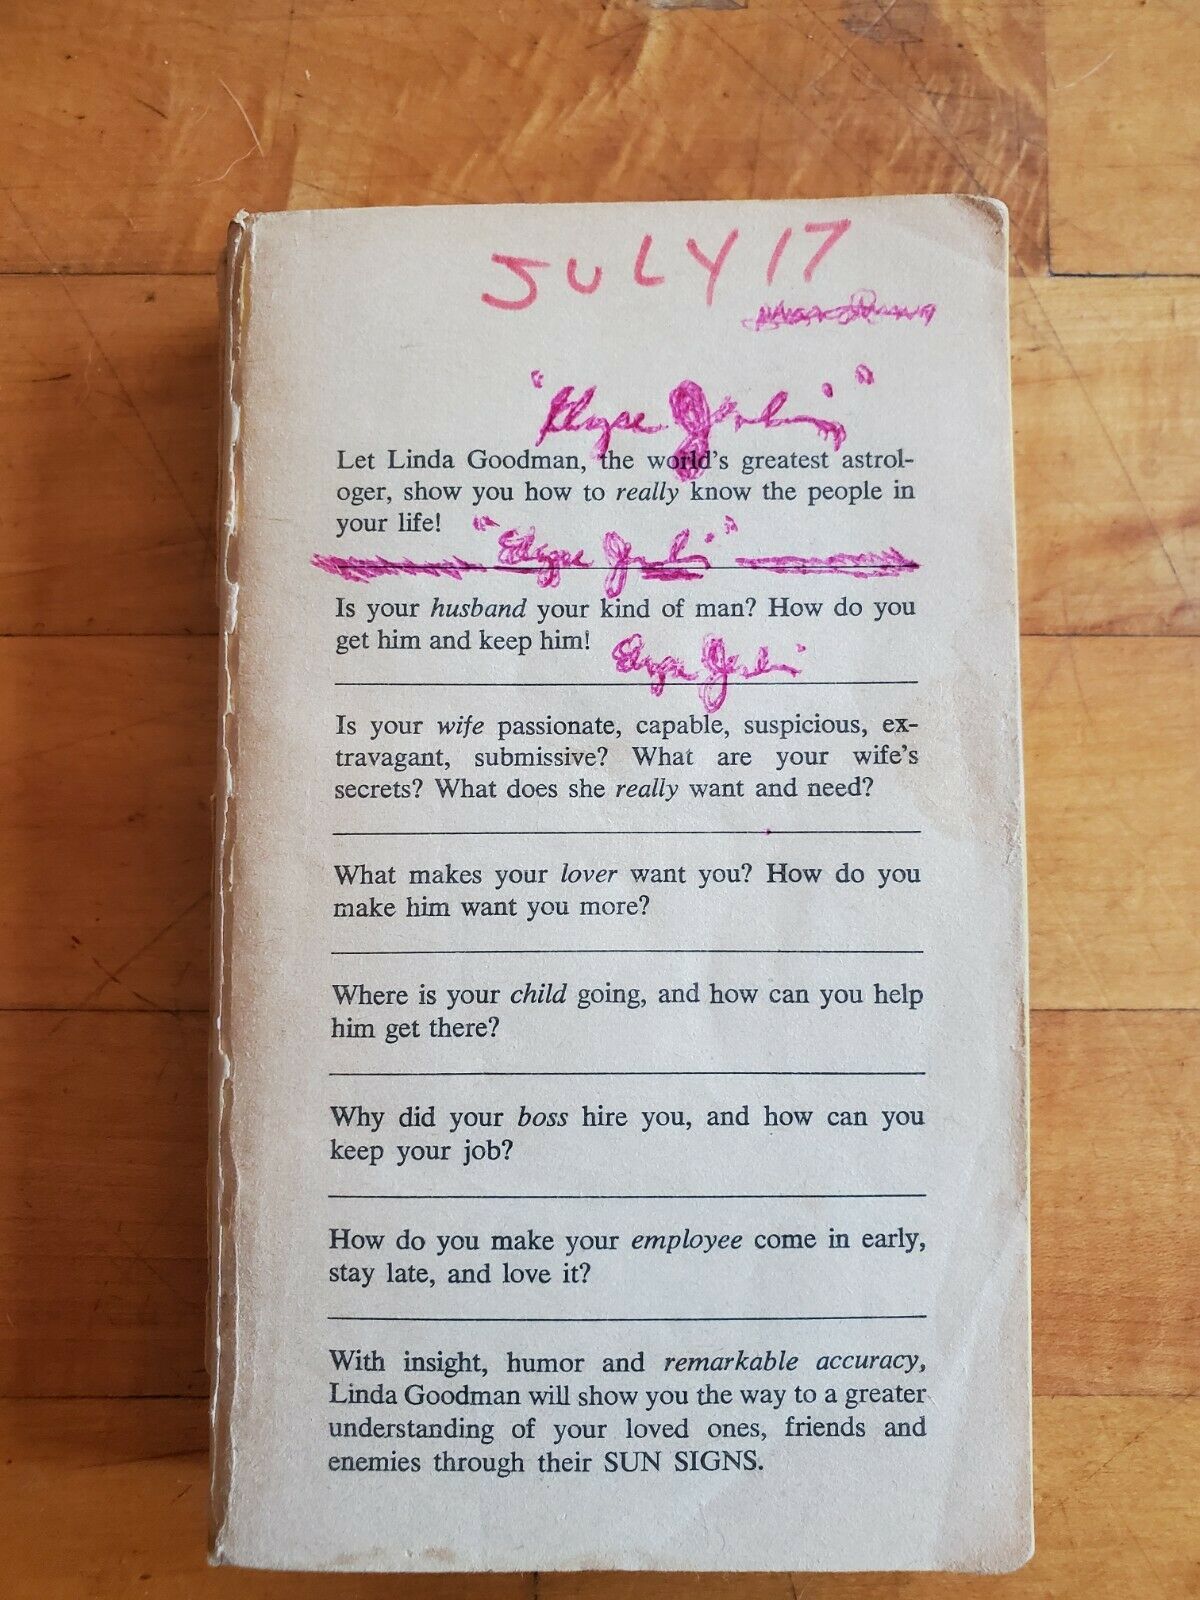 JULY 17
Let Linda Goodman, the world's greatest astrol-
oger, show you how to really know the people in
your life!
Is your husband your kind of man? How do you
get him and keep him!
Is your wife passionate, capable, suspicious, ex-
travagant, submissive? What are your wife's
secrets? What does she really want and need?
What makes your lover want you? How do you
make him want you more?
Where is your child going, and how can you help
him get there?
Why did your boss hire you, and how can you
keep your job?
How do you make your employee come in early,
stay late, and love it?
With insight, humor and remarkable accuracy,
Linda Goodman will show you the way to a greater
understanding of your loved ones, friends and
enemies through their SUN SIGNS.